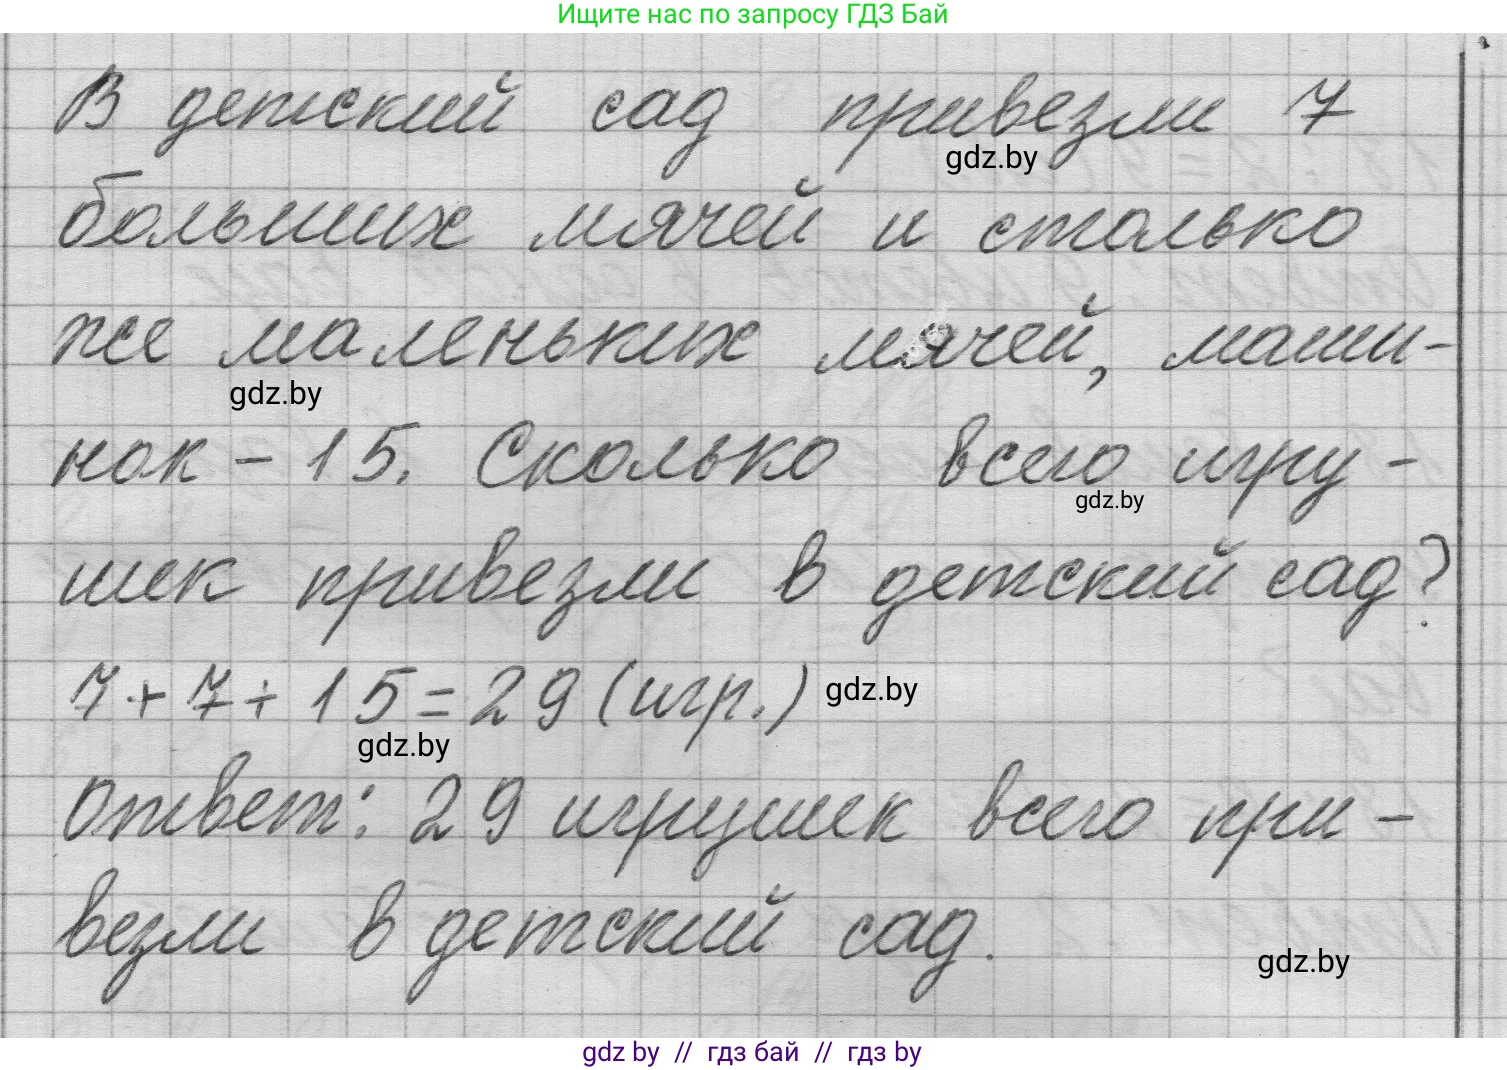 Ищите нас по запросу ГДЗ Бай
В детский сад привезли 7
gdz.by
больших мячей и столько
же маленьких мячей, маши-
gdz.by
нок - 15. Сколько всего игру-
gdz.by
шек привезли в детский сад?
7+7+15=29 (игр.)
gdz.by
gdz.by
Ответ: 29 игрушек всего при-
везли в детский сад.
gdz.by
gdz by // гдз бай // гдз by